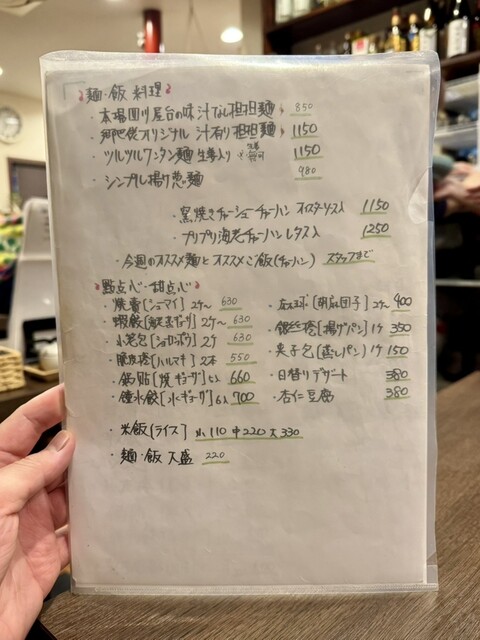 麺・飯 料理
・本場四川屋台の味 汁なし担担麺 850
・オリジナル 汁有り担担麺 1150
・ツルツルワンタン麺 生姜入り 1150
・シンプル揚げ葱麺 980
・窯焼きチャーシューチャーハン オイスターソース入 1150
・プリプリ海老チャーハン レタス入 1250
・今週のオススメ麺とオススメご飯(チャーハン) スタッフまで
點点心・甜点心
・焼賣[シューマイ] 2ケ〜 630
・蝦餃[海老蒸ギョーザ] 2ケ〜 630
・小笼包[ショウロンポウ] 2ケ 630
・脆皮捲[ハルマキ] 2本 550
・鍋貼[焼ギョーザ] 660
・鍾水餃[水ギョーザ] 6入 700
・芝麻球[胡麻団子] 2ケ〜 400
・銀丝捲[揚げパン] 1ケ 350
・菓子包[蒸しパン] 1ケ 150
・日替りデザート 380
・杏仁豆腐 380
・米飯[ライス] 小110 中220 大330
・麺・飯 大盛 220